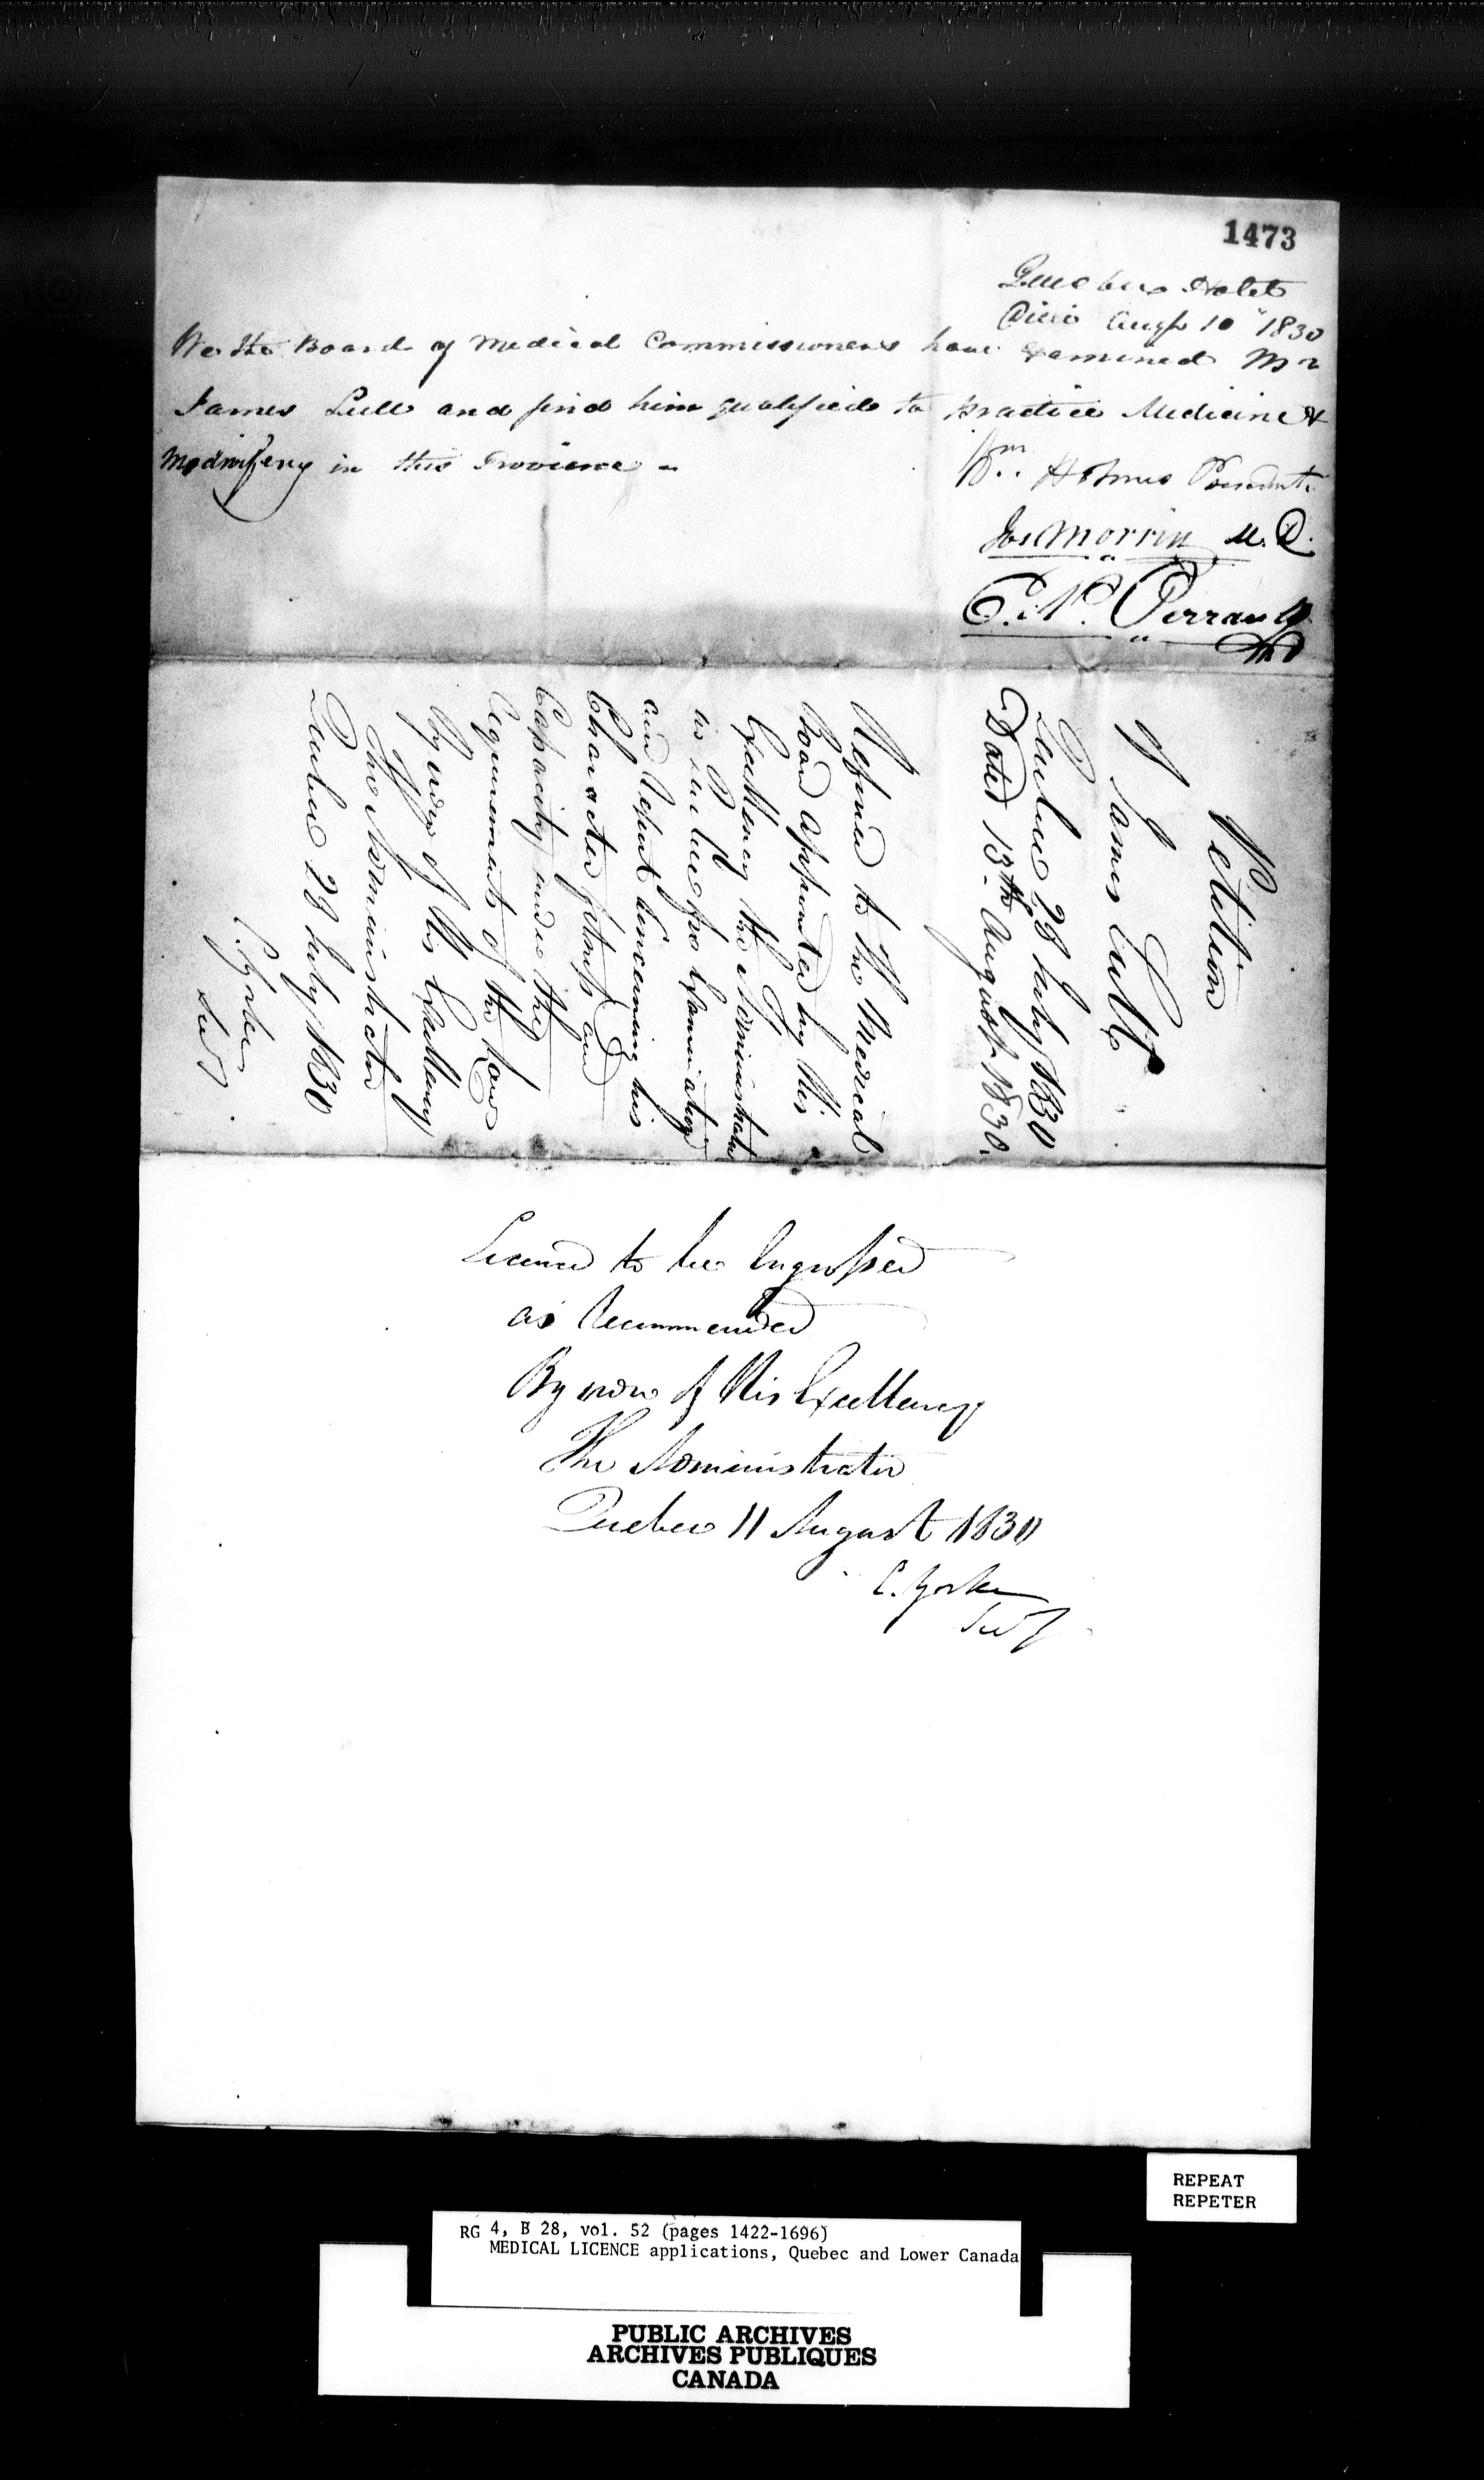 1473
Quebec Hotel
Dieu Augt 10 1830
We the Board of Medical Commissioners have examined Mr
James Lull and find him qualified to practice Medicine &
Midwifery in this Province -
Wm Holmes President.
Jos Morrin M.D.
C. N. Perrault
MD
Petition
of James Lull
Quebec 28 July 1830
Dated 13th August 1830.
Referred to the Medical
Board appointed by His
Excellency the Administrator
in Quebec for Examination
and Report concerning his
Character fitness and
Capacity under the
requirements of the Law
By order of His Excellency
The Administrator
Quebec 28 July 1830
C. Yorke
Secy
Licence to be Engrossed
as recommended
By order of His Excellency
The Administrator
Quebec 11 August 1830
C. Yorke
Secy
REPEAT
REPETER
RG 4, B 28, vol. 52 (pages 1422-1696)
MEDICAL LICENCE applications, Quebec and Lower Canada
PUBLIC ARCHIVES
ARCHIVES PUBLIQUES
CANADA